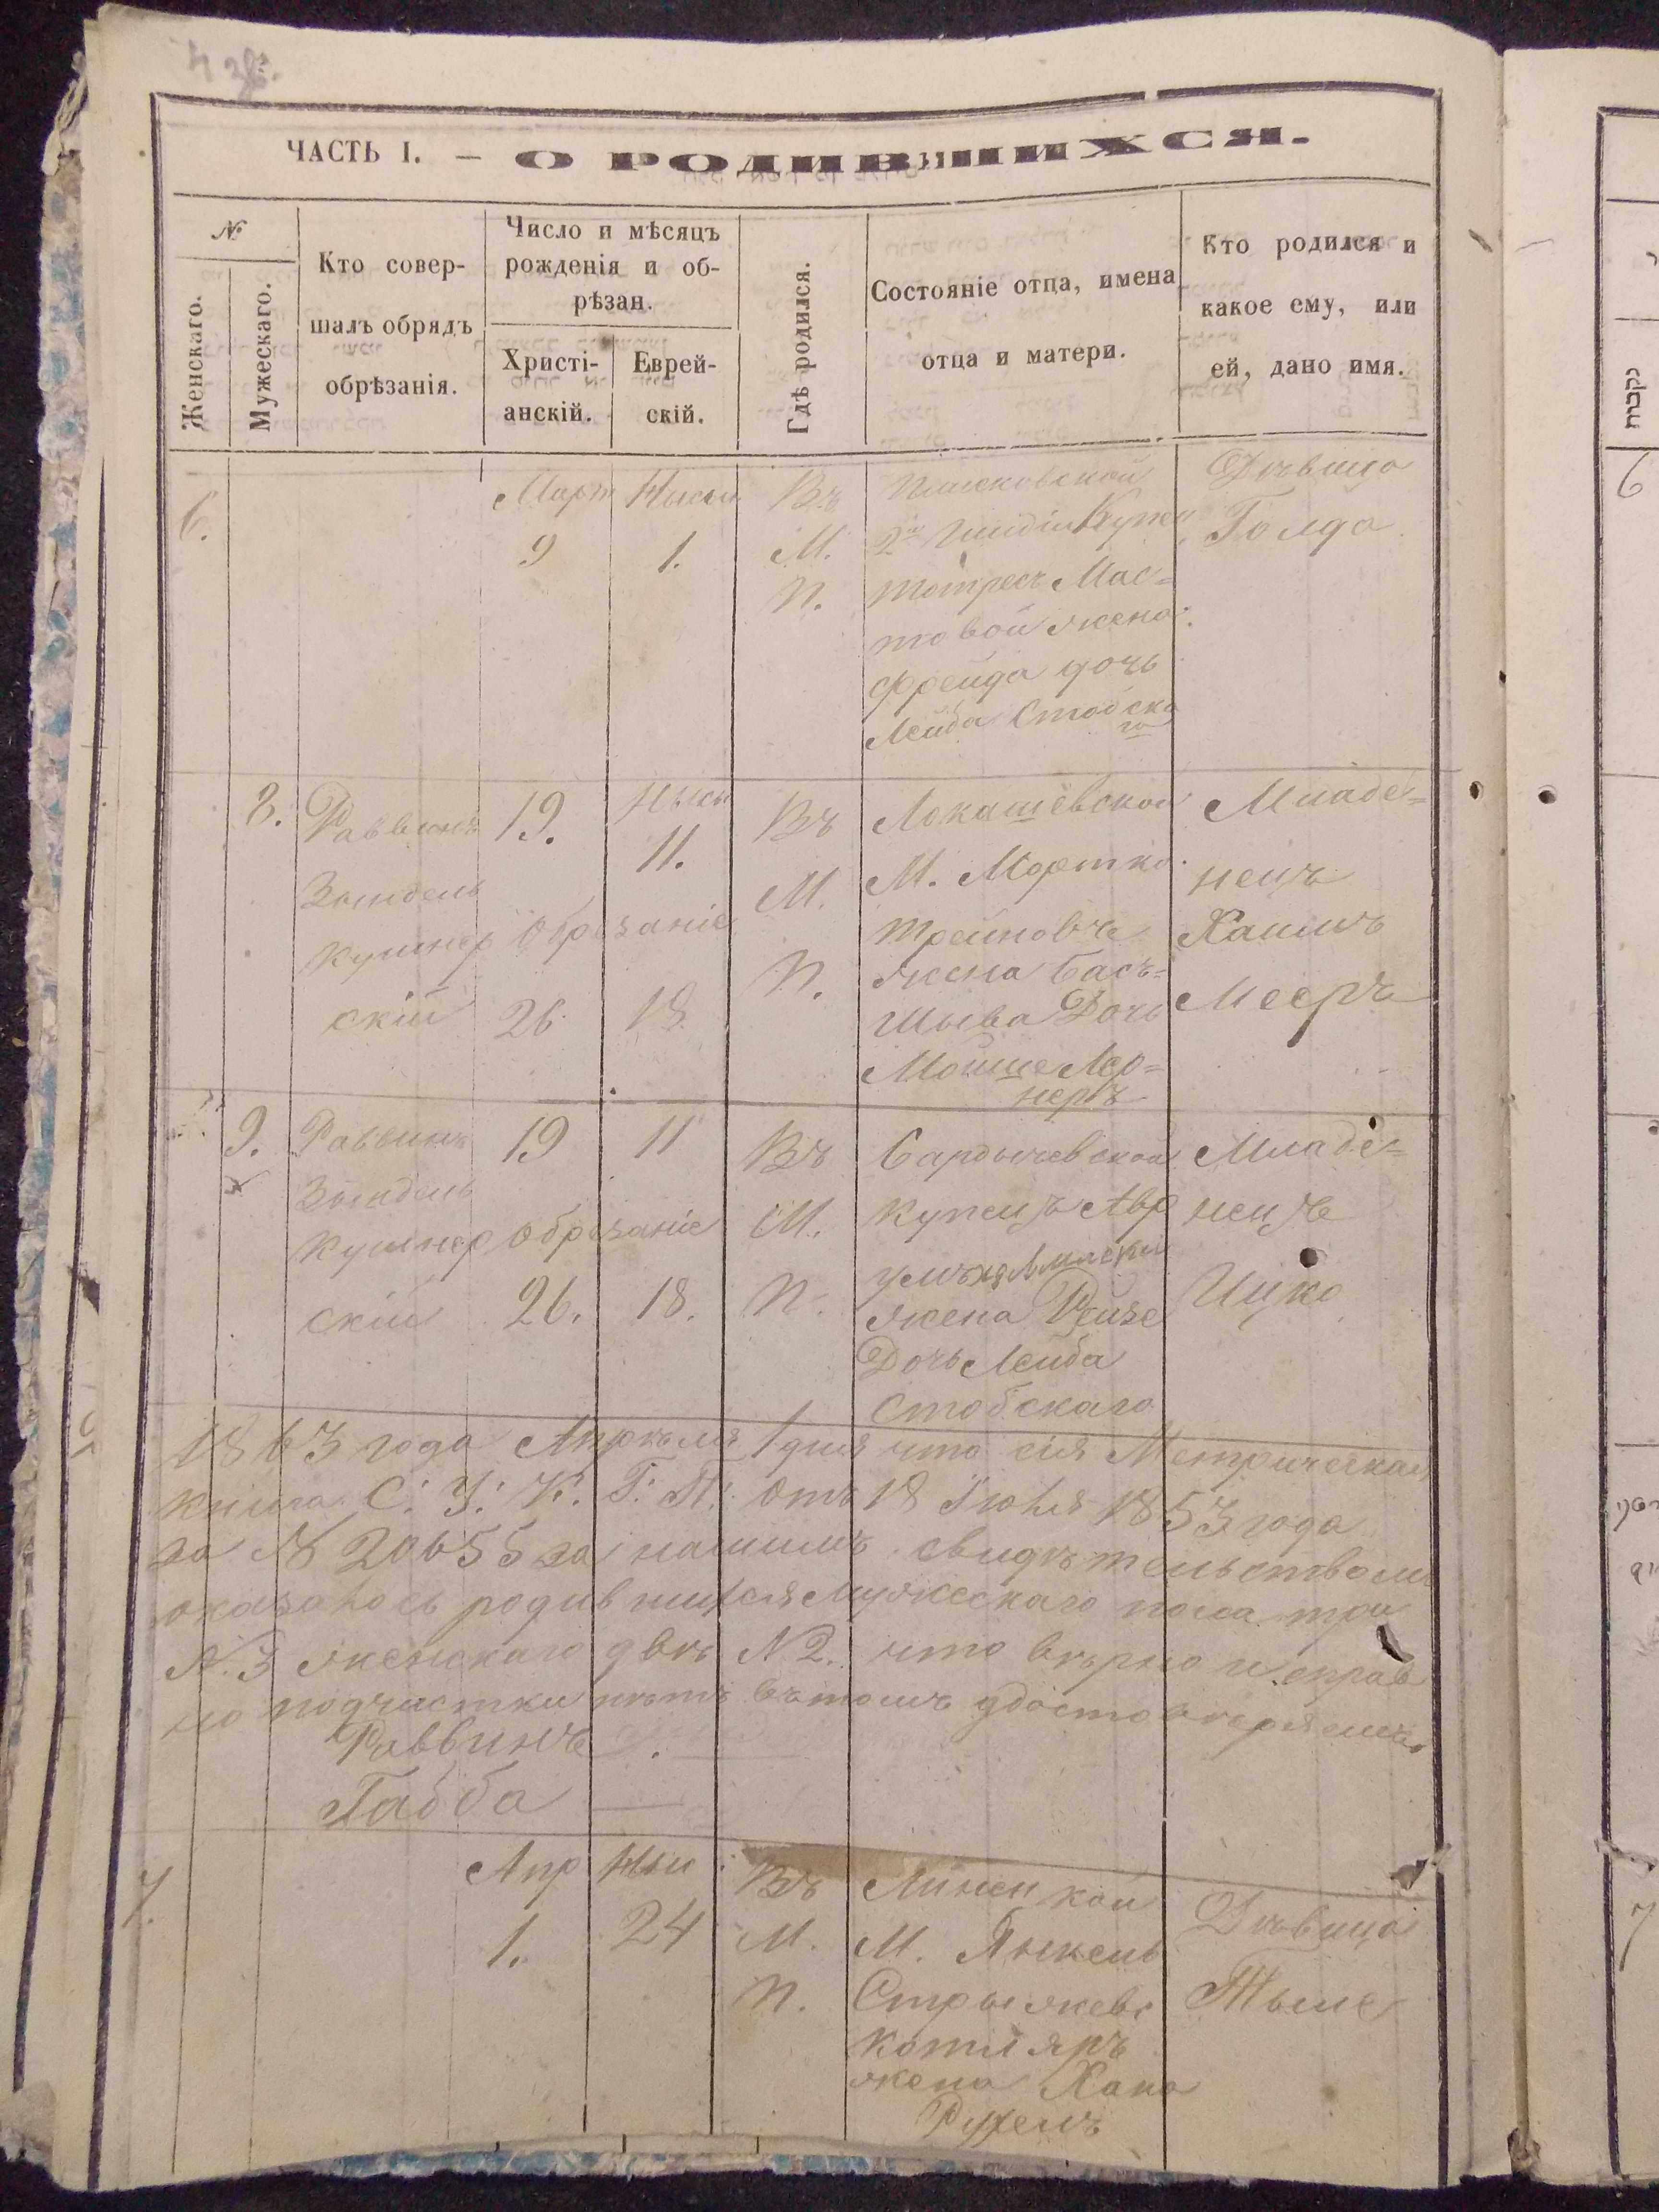 ЧАСТЬ I. — О РОДИВШИХСЯ.
№
Женскаго.
Мужескаго.
Кто совер-
шалъ обрядъ
обрѣзанія.
Число и мѣсяцъ
рожденія и об-
рѣзан.
Христі-
анскій.
Еврей-
скій.
Гдѣ родился.
Состояніе отца, имена
отца и матери.
Кто родился и
какое ему, или
ей, дано имя.
6.
Март
9
1.
Въ
М.
П.
2й Гильдіи Купец
Мас=
товой жена
Фрейда дочь
Лейба Стобска
го
Дѣвица
Голда
8.
Раввинъ
Зындель
Кушнер
скій
19.
Обрезаніе
26.
11.
18
Въ
М.
П.
Локашевской
М. Мортко
жена Бася=
Шыва Дочь
Мойше Лер=
неръ
Младе=
нецъ
Хаимъ
Мееръ
9.
Раввинъ
Зындель
Кушнер
скій
19
Обрезаніе
26.
11
18.
Въ
М.
П.
Бардычевской
Купецъ Авр
жена Рейзе
Дочь Лейба
Стобскаго
Младе=
нецъ
Ицко
1863 года Апрѣля 1 дня что сія Метрическая
книга С. У. К. Г. П. отъ 18 Іюля 1853 года
за № 20655 за нашимъ свидѣтельствомъ
оказалось родившихся мужескаго пола три
№. 3 женскаго двѣ № 2. что вѣрно и справ
но подчистки нѣтъ въ томъ удостовѣряемъ
Раввинъ
Габба
7.
Апр
1.
24
Въ
М.
П.
М. Янкель
Котляръ
жена Хана
Рухель
Дѣвица
6
7